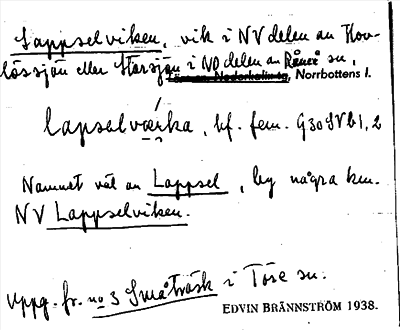 Lappselviken, vik i NV delen av Hov-
lössjön eller Storsjön i NO delen av Råneå sn,
Norrbottens l.
lapselvæ̱rka, bf. fem. G30SVb1,2
Namnet väl av Lappsel, lbg några km.
NV Lappselviken.
Uppg. fr. no 3 Småträsk i Töre sn.
EDVIN BRÄNNSTRÖM 1938.